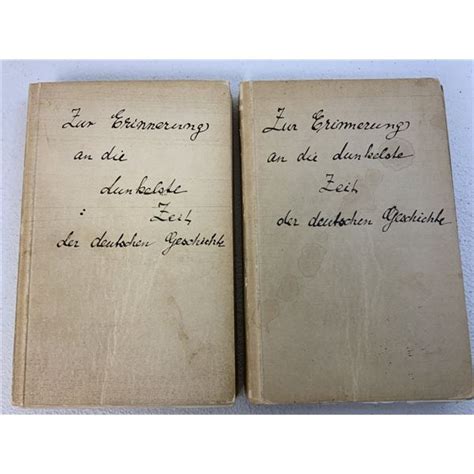 Zur Erinnerung
an die
dunkelste
: Zeit
der deutschen Geschichte
Zur Erinnerung
an die dunkelste
Zeit
der deutschen Geschichte